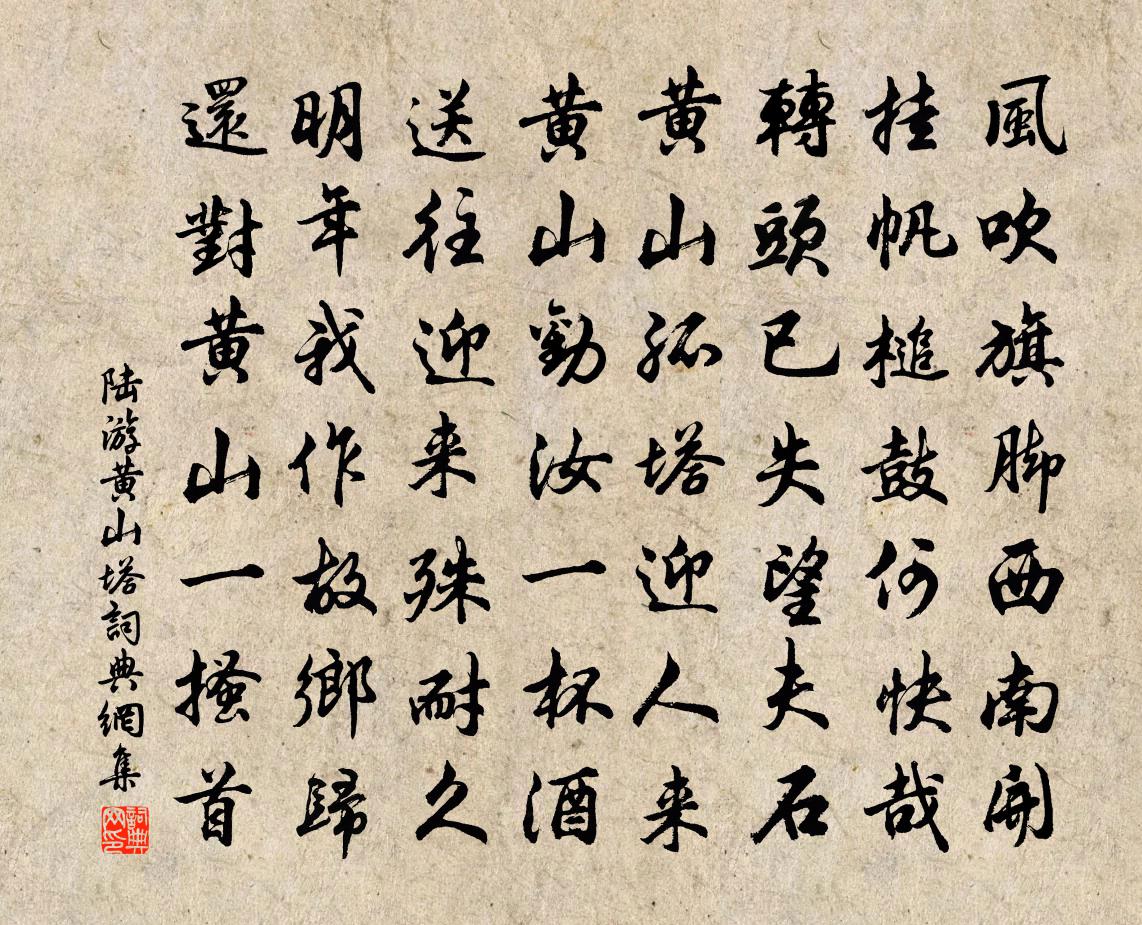 風吹旗脚西南開
挂帆槌鼓何快哉
轉頭已失望夫石
黄山孤塔迎人来
黄山勸汝一杯酒
送往迎来殊耐久
明年我作故鄉歸
還對黄山一搔首
陆游黄山塔詞典網集
詞典
网印